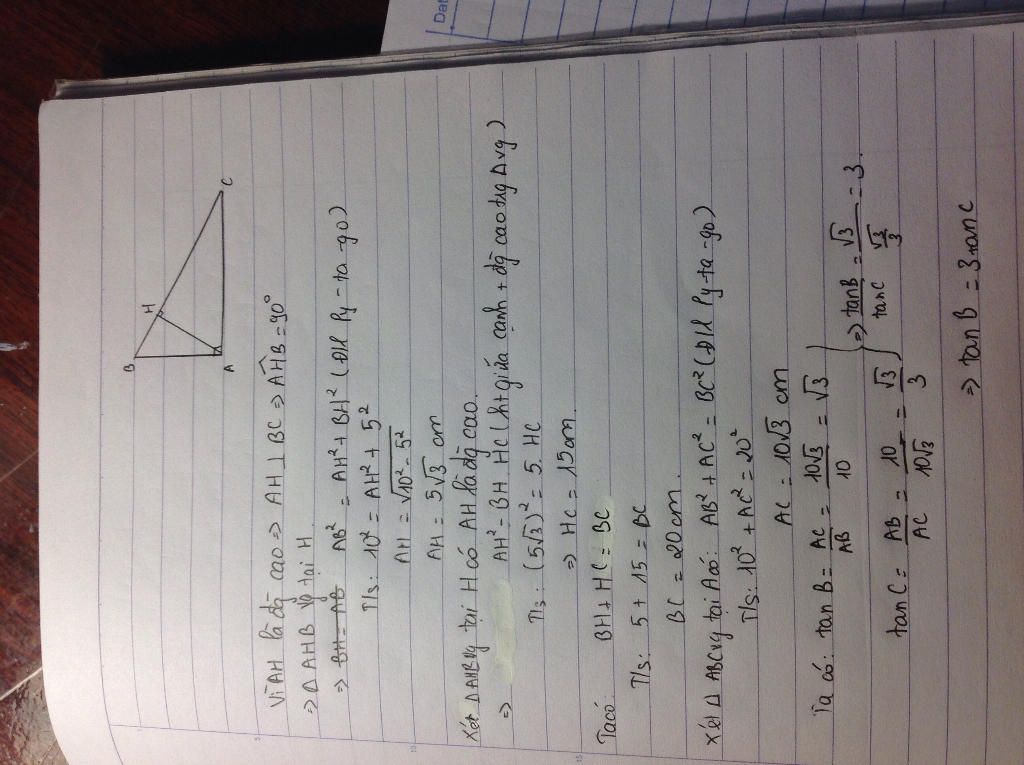 Dat
B
H
A
C
Vì AH là đg cao => AH ⊥ BC => AHB = 90°
=> Δ AHB vg tại H.
=> BH = AB AB² = AH² + BH² (Đlí Py-ta-go)
T/s: 10² = AH² + 5²
AH = √10² - 5²
AH = 5√3 cm
Xét ΔAHB vg tại H có AH là đg cao.
=> AH² = BH HC (ht giữa cạnh + đg cao trg Δvg)
T/s: (5√3)² = 5. HC
=> HC = 15cm
Ta có: BH + HC = BC
T/s: 5 + 15 = BC
BC = 20cm.
Xét Δ ABC vg tại A có: AB² + AC² = BC² (Đlí Py-ta-go)
T/s: 10² + AC² = 20²
AC = 10√3 cm
Ta có: tan B = AC/AB = 10√3/10 = √3
tan C = AB/AC = 10/10√3 = √3/3
=> tan B/tan C = √3/(√3/3) = 3.
=> tan B = 3.tan C
5
10
15